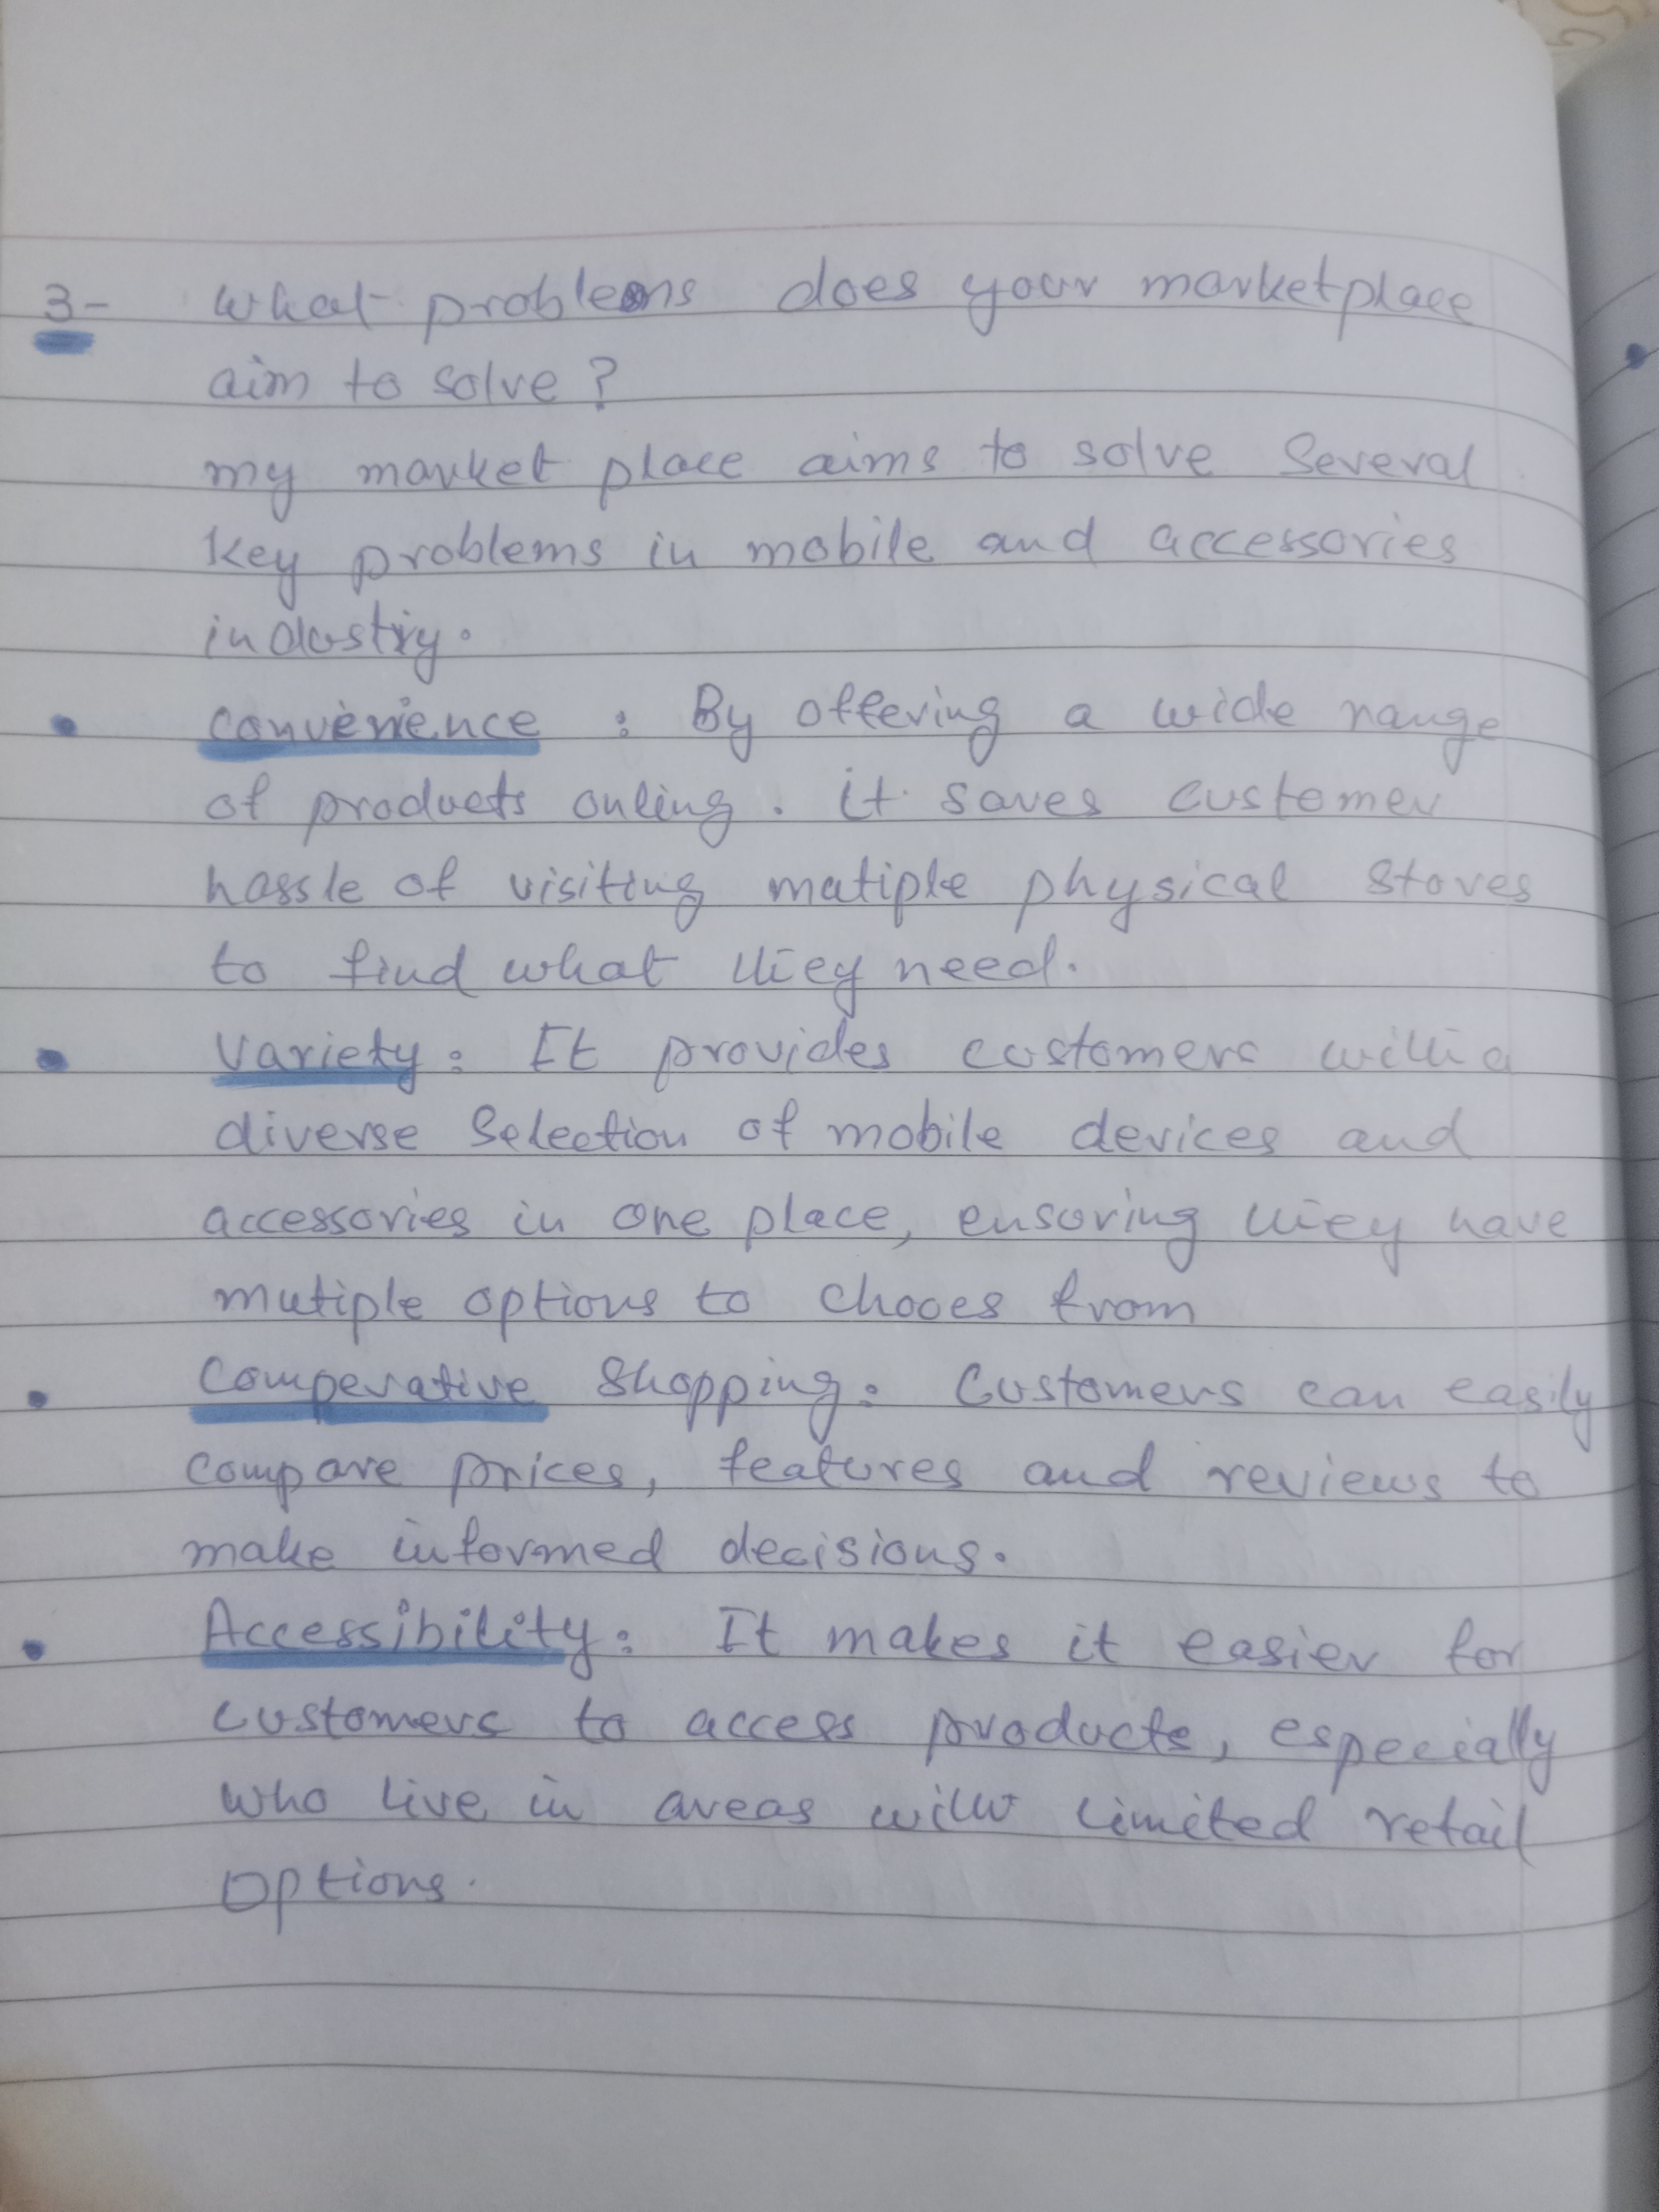 3- what problems does your marketplace
aim to solve?
my market place aims to solve several
key problems in mobile and accessories
industry.
• convenience : By offering a wide range
of products onling. it saves customer
hassle of visiting matiple physical stores
to find what they need.
• Variety: It provides customers with a
diverse selection of mobile devices and
accessories in one place, ensuring they have
mutiple options to chooes from
• Comperative Shopping: Customers can easily
compare prices, features and reviews to
make informed decisions.
• Accessibility: It makes it easier for
customers to access products, especially
who live in areas with limited retail
options.